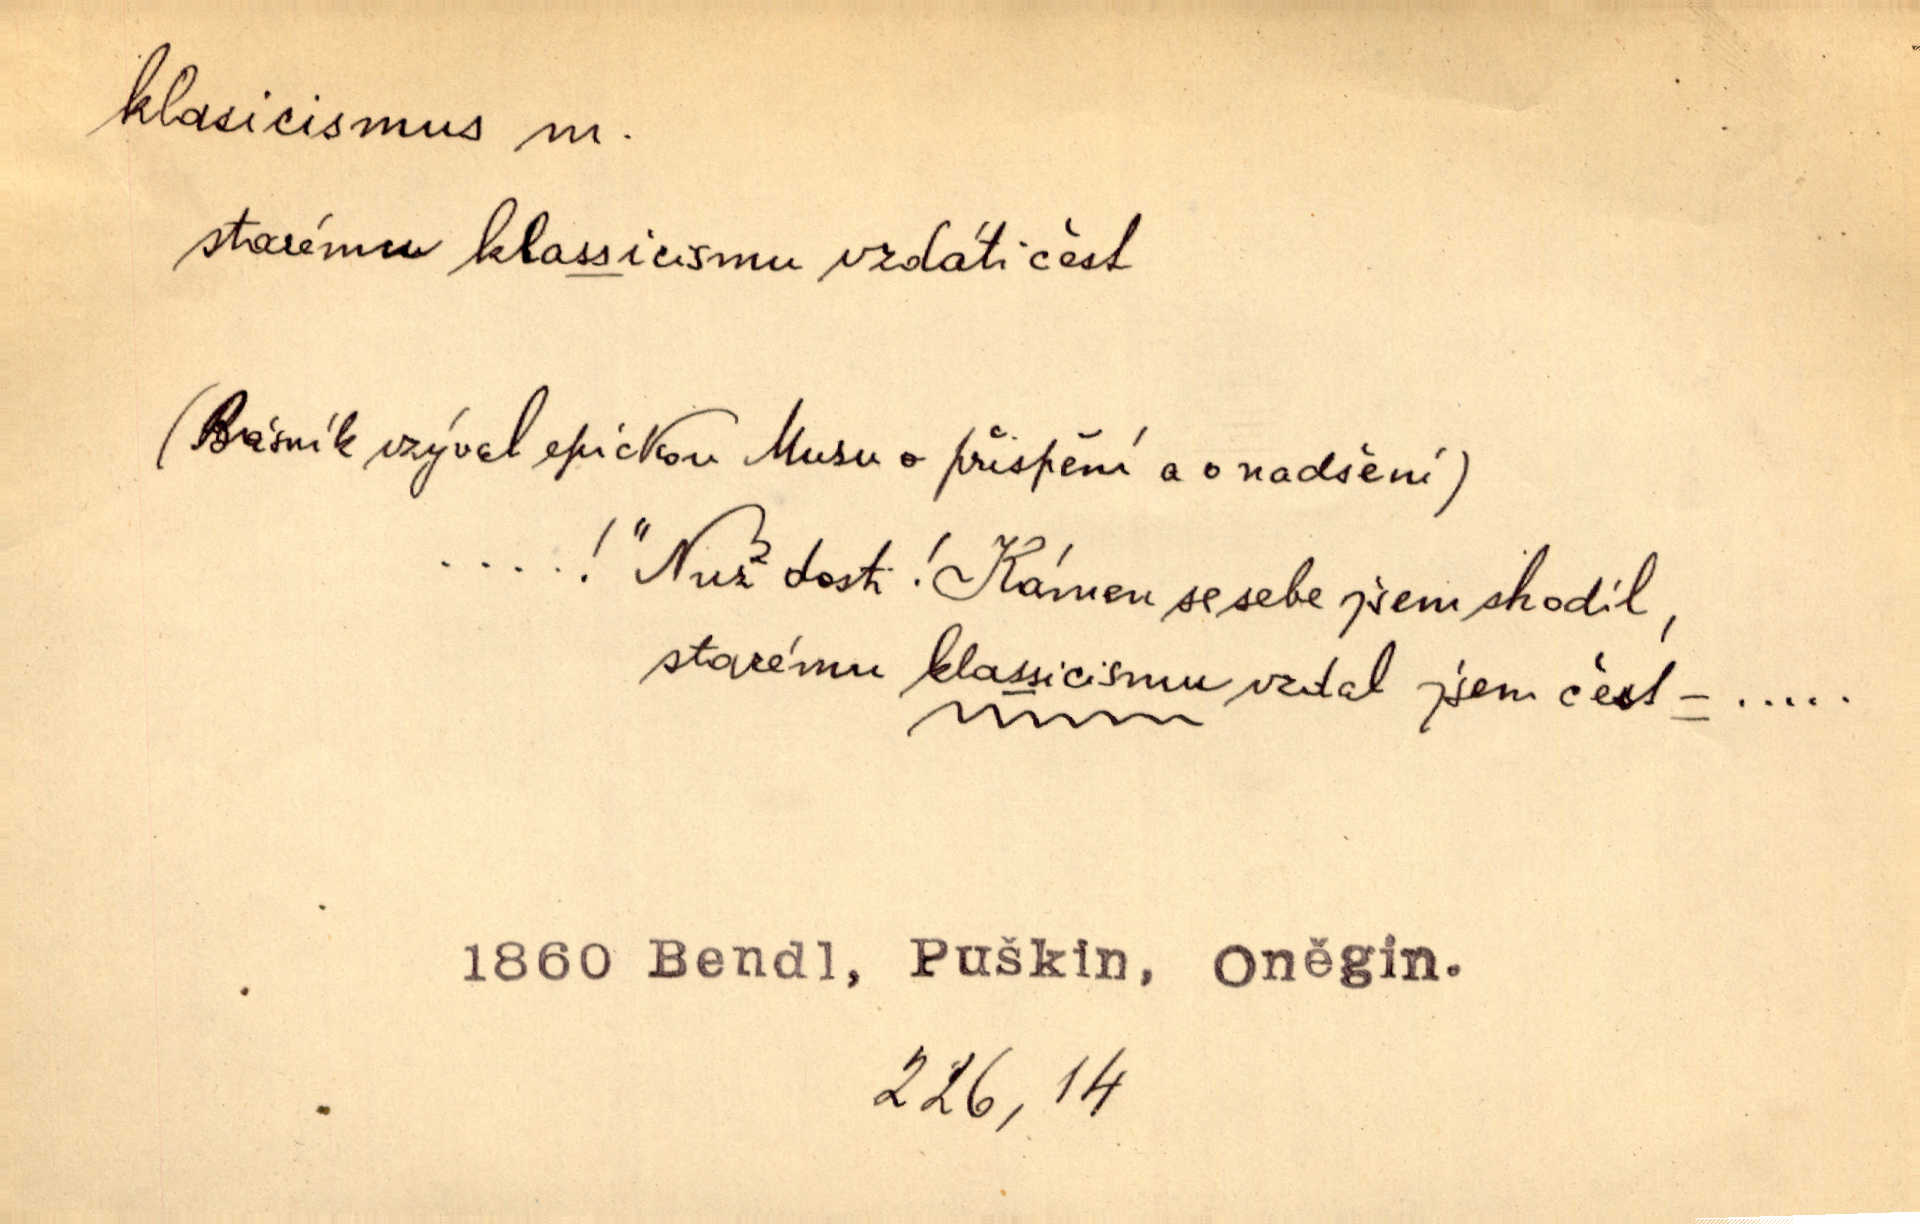 klasicismus m.
starému klassicismu vzdáti čest
(Básník vzýval epickou Musu o přispění a o nadšení)
.....! "Nuž dosti! Kámen se sebe jsem shodil,
starému klassicismu vzdal jsem čest – .....
1860 Bendl, Puškin, Oněgin.
226, 14